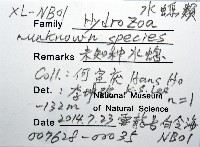 XL-NB01 水螅類
Family Hydrozoa
unknown species
Remarks 未知種水螅
Coll.: 何宣慶 Hans Ho
Det.: 李坤瑄 K.S. Lee n=1
-132m National Museum
of Natural Science
Date 2014.7.23
007628-00035 NB01